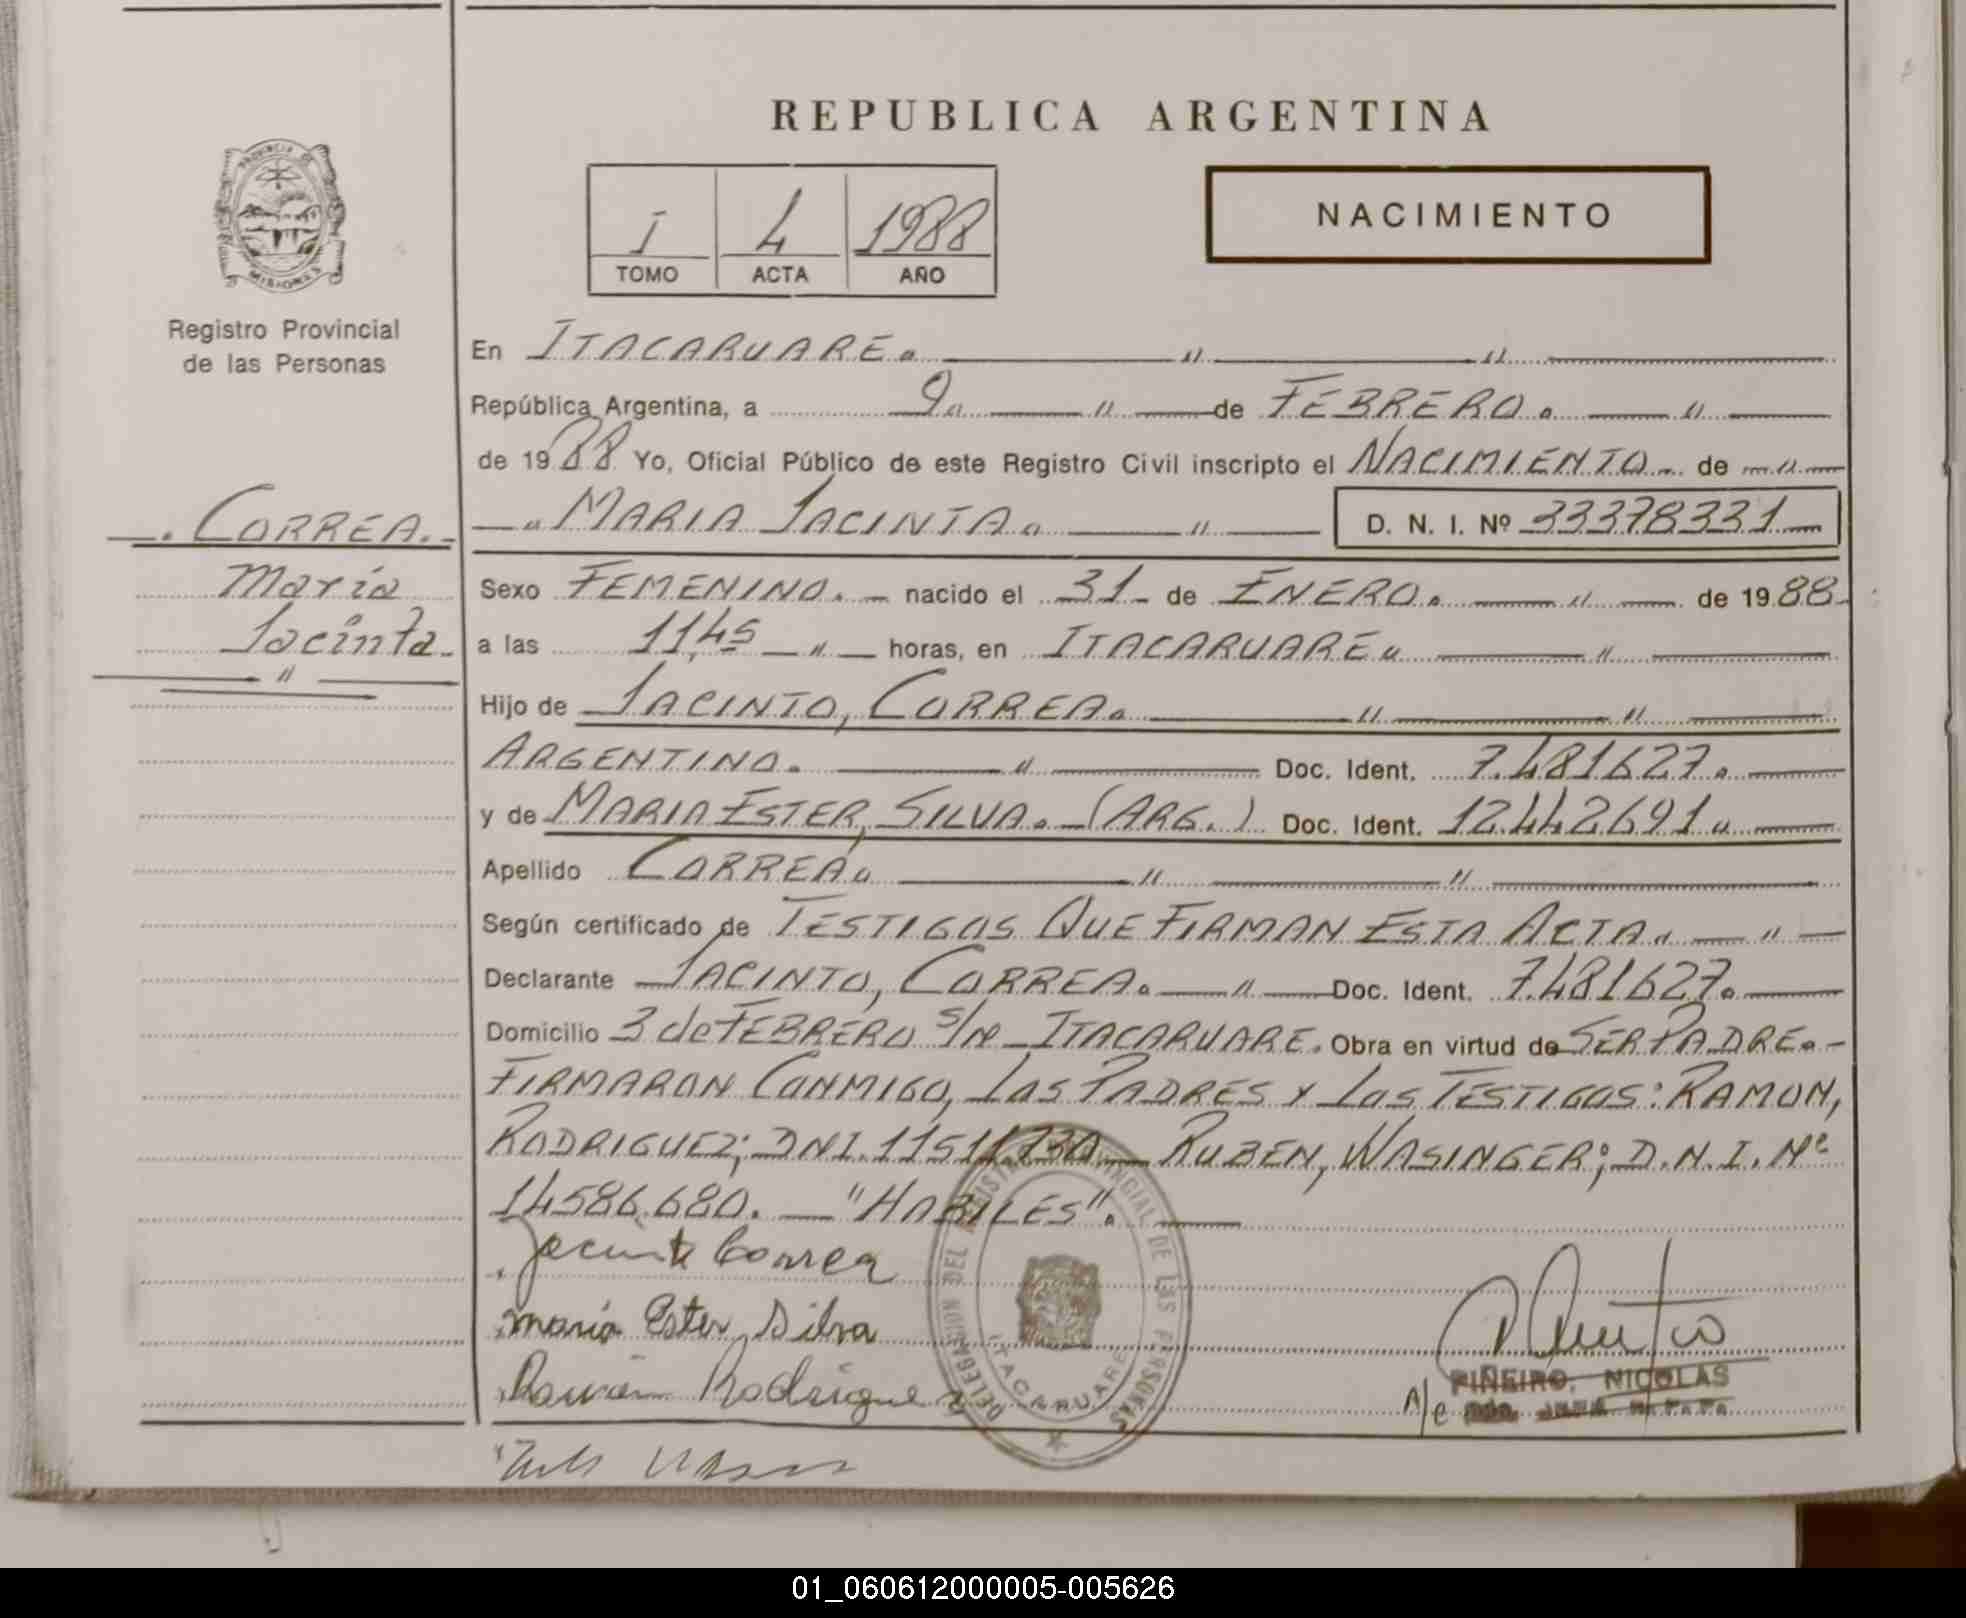 REPUBLICA ARGENTINA
PROVINCIA DE
MISIONES
Registro Provincial
de las Personas
I 4 1988
TOMO ACTA AÑO
NACIMIENTO
En ITACARUARE.
República Argentina, a 9. " de FEBRERO. "
de 1988 Yo, Oficial Público de este Registro Civil inscripto el NACIMIENTO de "
MARIA JACINTA. " D. N. I. Nº 33378331
CORREA.
Maria
Jacinta.
"
Sexo FEMENINO. nacido el 31 de ENERO. " de 1988
a las 11,45 " horas, en ITACARUARE. "
Hijo de JACINTO, CORREA. " "
ARGENTINO. " Doc. Ident. 7.481627.
y de MARIA ESTER, SILVA. (ARG.) Doc. Ident. 12442691.
Apellido CORREA. " "
Según certificado de TESTIGOS QUE FIRMAN ESTA ACTA. "
Declarante JACINTO, CORREA. " Doc. Ident. 7.481627.
Domicilio 3 de FEBRERO S/Nº ITACARUARE. Obra en virtud de SER PADRE.
FIRMARON CONMIGO, LOS PADRES Y LOS TESTIGOS: RAMON,
RODRIGUEZ; DNI. 11511730 RUBEN, WASINGER; D.N.I. Nº
14586.680. "HABILES".
Jacinto Correa
maria Ester Silva
Ramón Rodriguez
DELEGACION DEL REGISTRO PROVINCIAL DE LAS PERSONAS
ITACARUARE
PIÑEIRO, NICOLAS
A/c
01_060612000005-005626